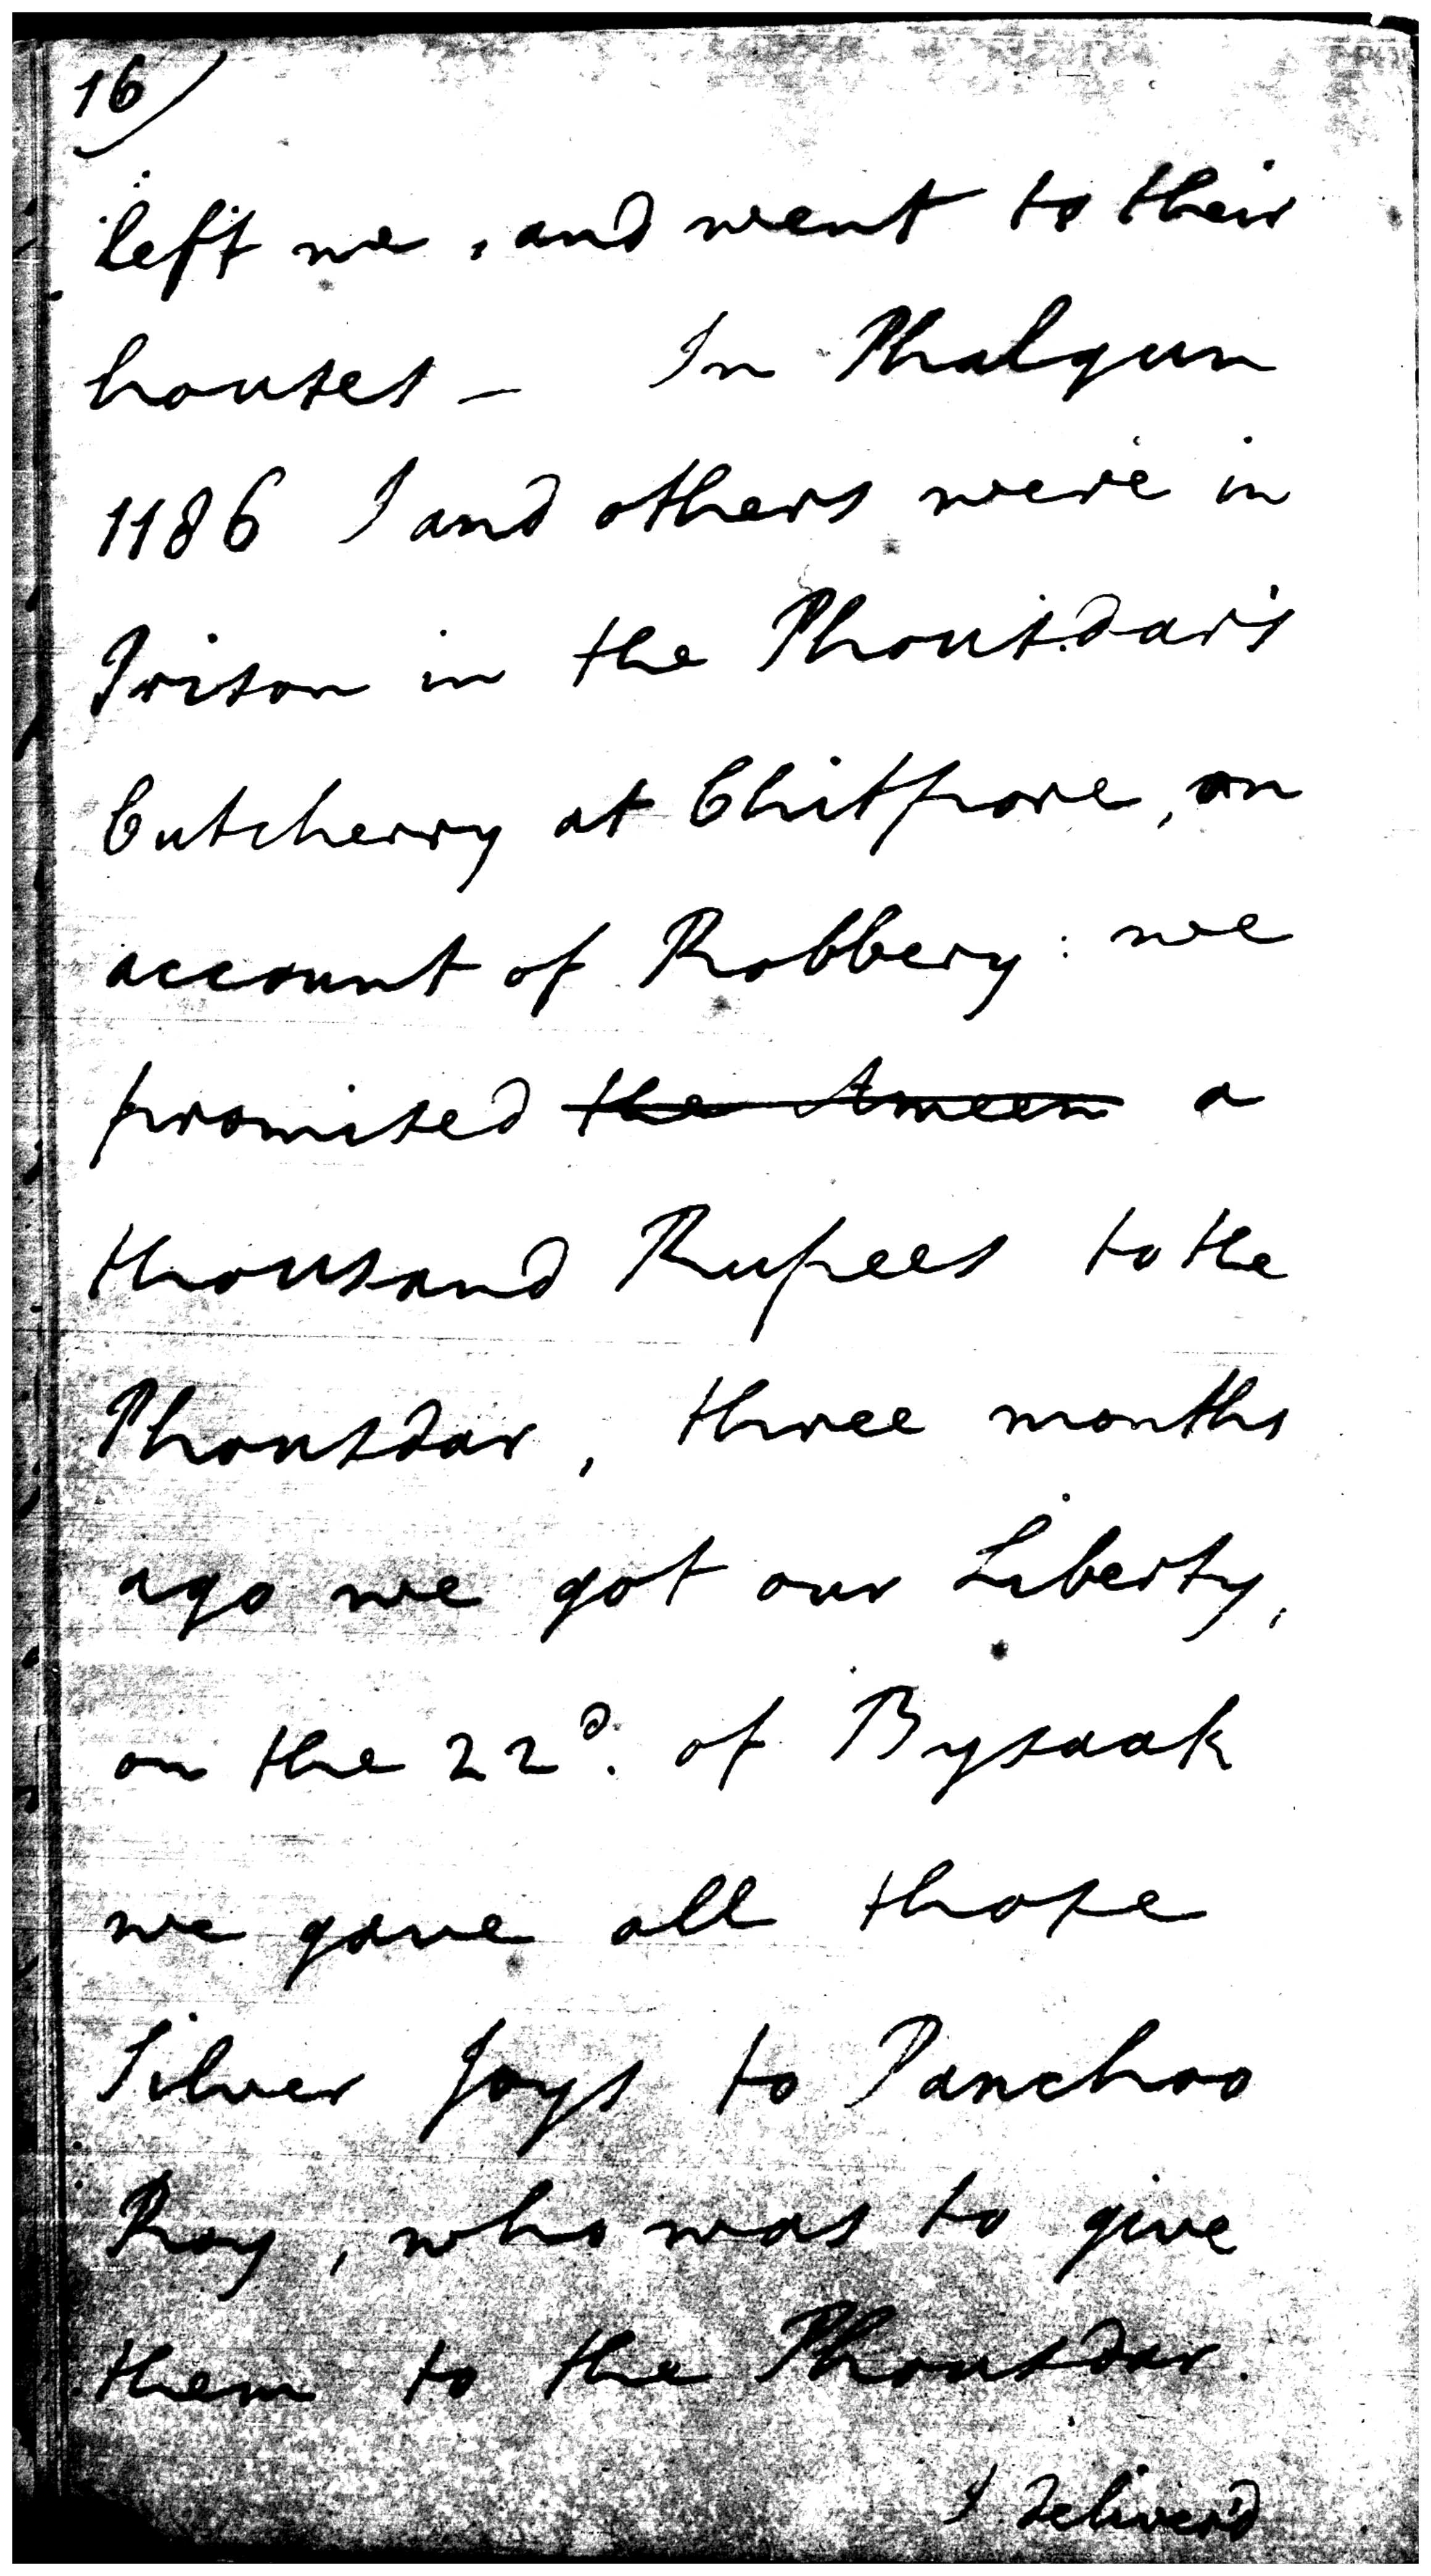 16/
left me, and went to their
houses — In Phalgun
1186 I and others were in
Prison in the Phousdar's
Cutcherry at Chitpore, on
account of Robbery: we
promised the Ameen a
thousand Rupees to the
Phousdar, three months
ago we got our Liberty,
on the 22d. of Bysaak
we gave all those
Silver Joys to Panchoo
Roy, who was to give
them to the Phousdar.
I deliver'd